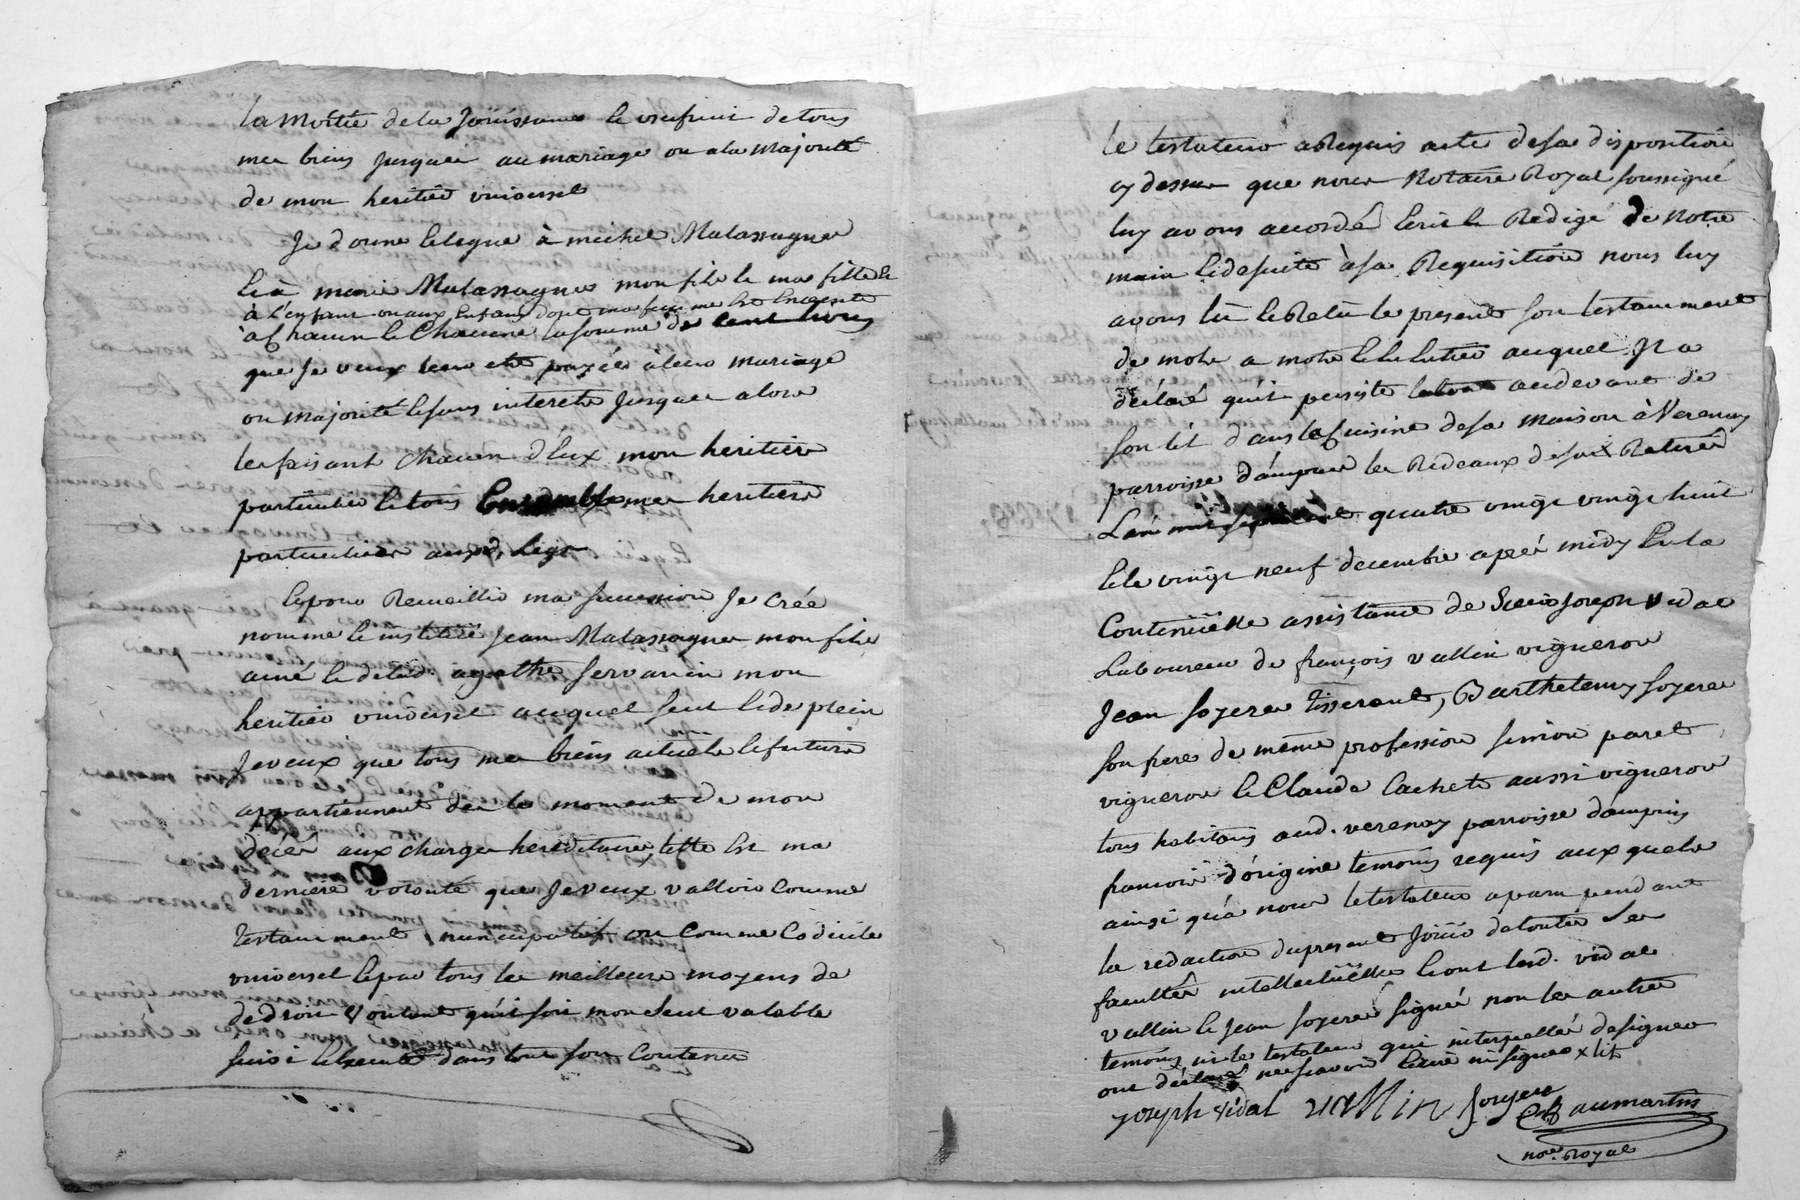 la moitié de la Joüissance & usufruit de tous
mes biens jusques au mariage ou a la majorité
de mon heritier universel
Je donne & legue à michel Malassagne
& à marie Malassagne mon fils & ma fille &
à l'enfant ou aux Enfans dont ma femme Est Enceinte
à Chacun & Chacune la somme de cent livres
que Je veux leur etre payée à leur mariage
ou majorité & sans interets Jusques alors
les faisant chacun d'Eux mon heritier
particulier & tous Ensemble mes heritiers
particuliers auxd. legs
& pour Recueillir ma succession Je crée
nomme & institüe Jean Malassagne mon fils
ainé & de lad. agathe servanin mon
heritier universel auquel seul & de plein
Je veux que tous mes biens actuels & futurs
appartiennent des le moment de mon
décès aux charges hereditaires, telle Est ma
derniere volonté que Je veux valloir Comme
testament, nuncupatif ou Comme Codicile
universel & par tous les meilleurs moyens de
de droit voulant qu'il soit mon seul valable
suivi & Executé dans tout son Contenu
le testateur a Requis acte de sa disposition
cy dessus que nous Notaire Royal soussigné
luy avons accordé Ecrit & Redigé de Notre
main & de suite à sa Requisition nous luy
avons lû & Relû le present son testament
de mots a mots & auquel Il a
déclaré qu'il persiste audevant de
son lit dans la Cuisine de sa maison à Verenay
parroisse d'ampuis les Rideaux desd. x Retirés
L'an mil sept cent quatre vingt vingt huit
& le vingt neuf decembre après midy En la
Continüelle assistance de Sieur Joseph vidal
Laboureur de françois vallin vigneron
Jean soyere tisserant, Barthelemy soyere
son frere de même profession simon paret
vigneron & Claude Cachet aussi vigneron
tous habitans aud. verenay parroisse d'ampuis
francois d'origine temoins requis aux quels
ainsi qu'a nous le testateur a paru pendant
la redaction du present Joüir de toutes Ses
facultés intellectüelles & ont lesd. vidal
vallin & Jean soyere signés non les autres
temoins ni le testateur qui interpellés de signer
ont déclaré ne scavoir Ecrire ni signer x lit
joseph vidal vallin soyere
Baumartin
nore. Royal